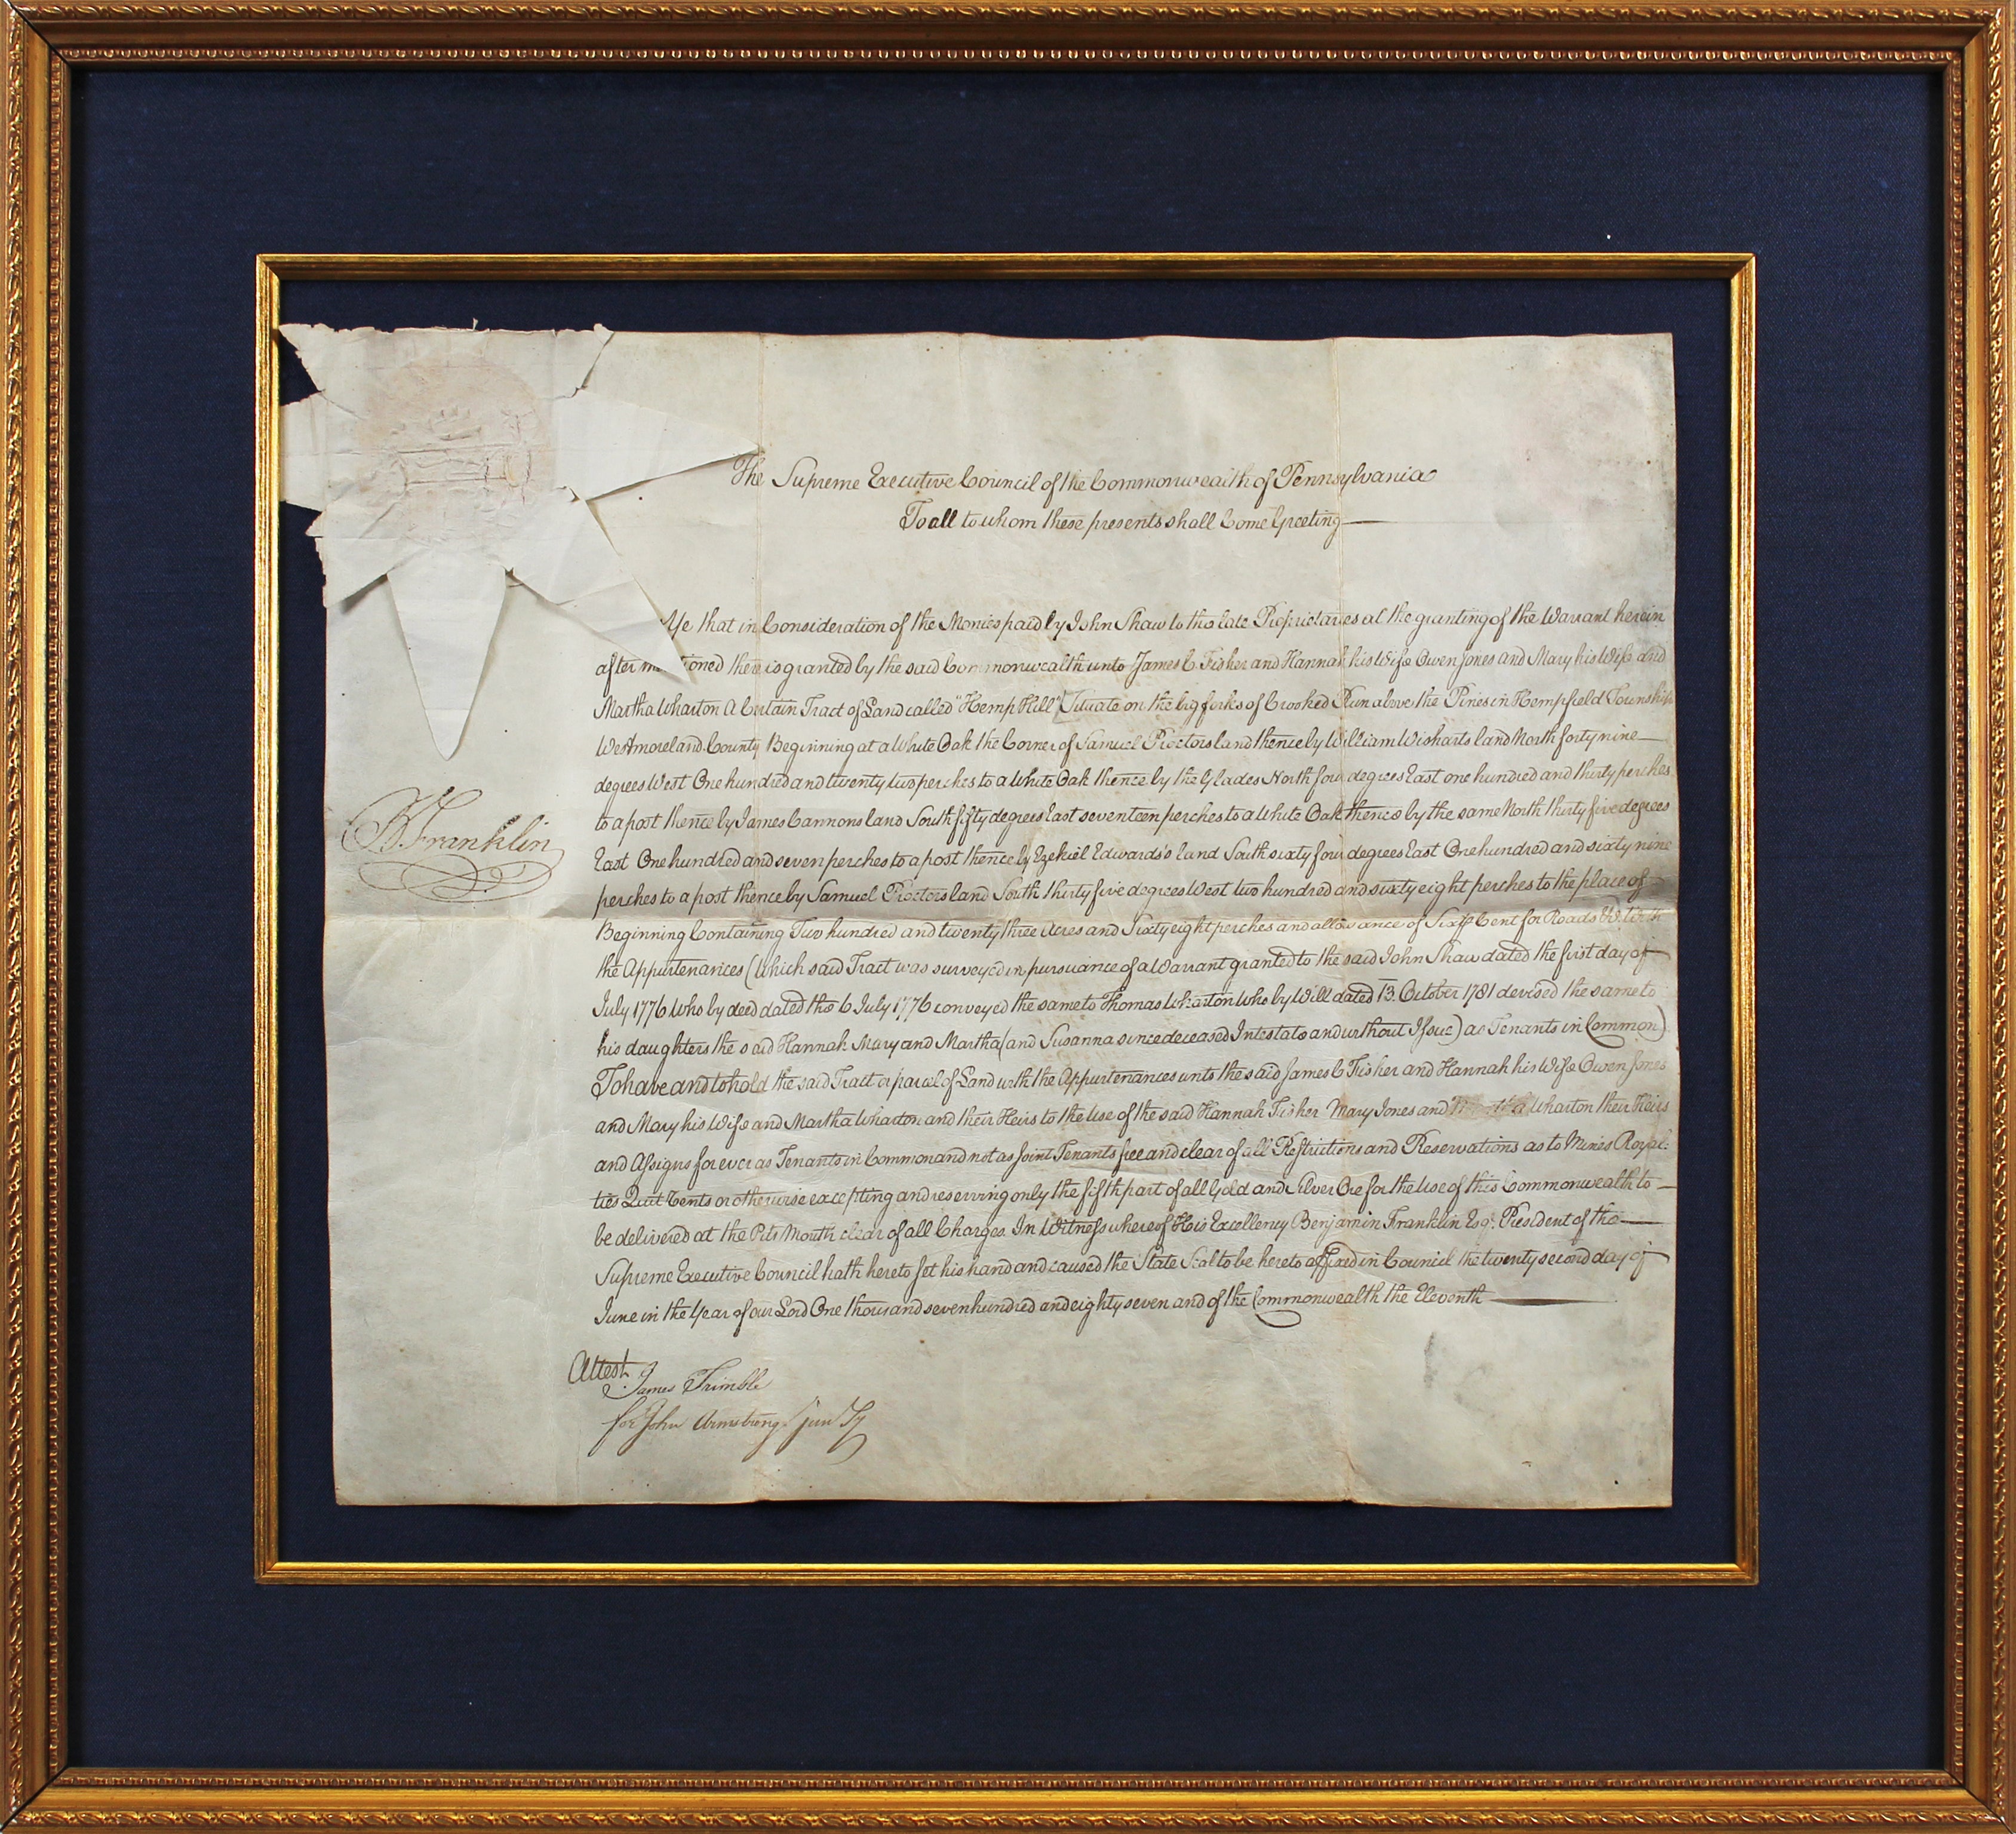 The Supreme Executive Council of the Commonwealth of Pennsylvania
To all to whom these presents shall Come Greeting
Ye that in Consideration of the Monies paid by John Shaw to the late Proprietaries at the granting of the Warrant herein
after mentioned there is granted by the said Commonwealth unto James C. Fisher and Hannah his Wife Owen Jones and Mary his Wife and
Martha Wharton A Certain Tract of Land called "Hemp Hill" Situate on the big forks of Crooked Run above the Pines in Hempfield Township
Westmoreland County Beginning at a White Oak the Corner of Samuel Proctors land thence by William Wisharts land North forty nine
degrees West One hundred and twenty two perches to a White Oak thence by the Glades North four degrees East one hundred and thirty perches
to a post thence by James Cannons land South fifty degrees East seventeen perches to a White Oak thence by the same North thirty five degrees
East One hundred and seven perches to a post thence by Ezekiel Edwards's land South sixty four degrees East One hundred and sixty nine
perches to a post thence by Samuel Proctors land South thirty five degrees West two hundred and sixty eight perches to the place of
Beginning Containing Two hundred and twenty three Acres and Sixty eight perches and allowance of Six P Cent for Roads &c. With
the Appurtenances (Which said Tract was surveyed in pursuance of a Warrant granted to the said John Shaw dated the first day of
July 1776 Who by deed dated the 6 July 1776 conveyed the same to Thomas Wharton Who by Will dated 13. October 1781 devised the same to
his daughters the said Hannah Mary and Martha (and Susanna since deceased Intestate and without Issue) as Tenants in Common)
To have and to hold the said Tract or parcel of Land with the Appurtenances unto the said James C Fisher and Hannah his Wife Owen Jones
and Mary his Wife and Martha Wharton and their Heirs to the Use of the said Hannah Fisher Mary Jones and Martha Wharton their Heirs
and Assigns forever as Tenants in Common and not as Joint Tenants free and clear of all Restrictions and Reservations as to Mines Royal-
ties Quit Rents or otherwise excepting and reserving only the fifth part of all Gold and Silver Ore for the Use of this Commonwealth to
be delivered at the Pits Mouth clear of all Charges. In Witness whereof His Excellency Benjamin Franklin Esqr. President of the
Supreme Executive Council hath hereto set his hand and caused the State Seal to be hereto affixed in Council the twenty second day of
June in the Year of our Lord One thousand seven hundred and eighty seven and of the Commonwealth the Eleventh
B Franklin
Attest
James Trimble
for John Armstrong Junr Sy